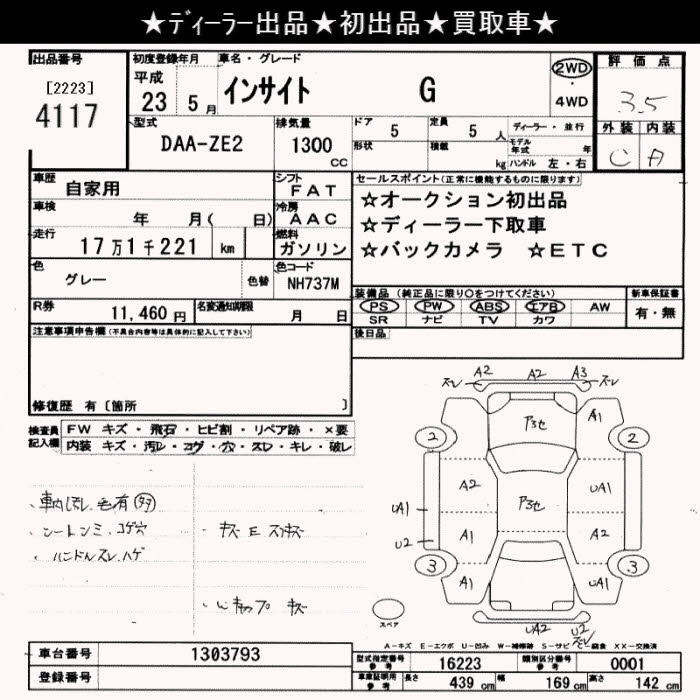 ★ディーラー出品★初出品★買取車★
出品番号
[2223]
4117
初度登録年月
平成
23 5 月
車名・グレード
インサイト G
2WD
・
4WD
評価点
3.5
外装 内装
C A
型式
DAA-ZE2
排気量
1300
CC
ドア 5
形状
定員 5 人
積載 kg
ディーラー・並行
モデル年式 年
ハンドル 左・右
車歴 自家用
シフト
FAT
車検 年 月( 日)
冷房
AAC
走行 17万1千221 km
燃料
ガソリン
セールスポイント(正常に機能するものに限ります)
☆オークション初出品
☆ディーラー下取車
☆バックカメラ ☆ETC
色
グレー
色替
色コード
NH737M
装備品(純正品に限り○をつけてください)
PS PW ABS エアB AW
SR ナビ TV カワ
新車保証書
有・無
R券 11,460 円
名変通知期限 月 日
後日品
注意事項申告欄(不具合内容等は具体的に記入して下さい)
修復歴 有〔箇所 〕
検査員
記入欄
FW キズ・飛石・ヒビ割・リペア跡・×要
内装 キズ・汚レ・コゲ・穴・スレ・キレ・破レ
・シートシミ、コゲ穴
・ハンドルスレ、ハゲ
A2 A2 A3
スレ スレ
A1
2 2
A2 UA1
UA1
U2
A1 A2
3 3
A1 UA1
UA2 U2
スレ
スペア
A-キズ E-エクボ U-凹み W-補修跡 S-サビ C-腐食 XX-交換済
車台番号 1303793
登録番号
型式指定番号
参考
16223
類別区分番号
参考
0001
車庫証明用
参考
長さ 439 cm 幅 169 cm 高さ 142 cm